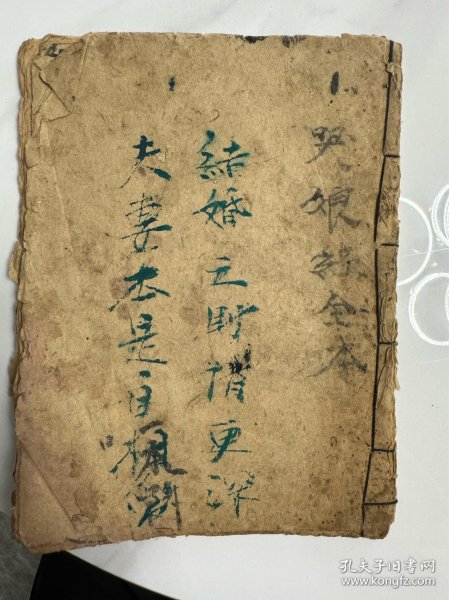 哭娘全本
結婚之時情更深
夫妻本是自
孔夫子旧书网
www.kongfz.com